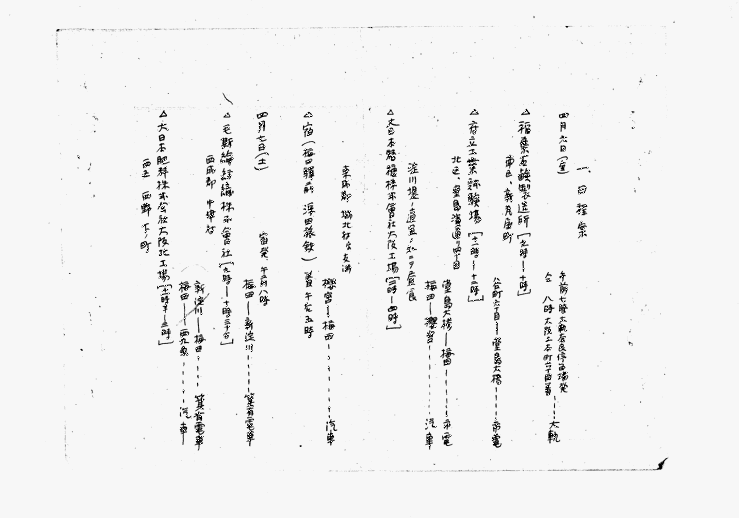 一、日程案
四月六日(金)
午前七時大軌奈良停留場発
〃 八時大阪上本町六丁目着……大軌
△稲葉石鹸製造所[九時―十時]
東区
△府立工業試験場[十一時―十二時]
北区、堂島濱通
八百町六丁目―堂島大橋……市電
堂島大橋―梅田……市電
梅田―櫻宮……汽車
淀川堤
△大日本 株式會社大阪工場[二時―四時]
東成郡 城北村
櫻宮―梅田……汽車
△宿(梅田驛前 浮田旅館)着午后五時
四月七日(土)
宿発、午前八時
△毛斯綸紡織株式會社[九時―十時三十分]
西成郡 中津村
梅田―新淀川……箕有電車
新淀川―梅田……箕有電車
△大日本肥料株式会社大阪北工場
西区 西野下ノ町
梅田―西九条……汽車